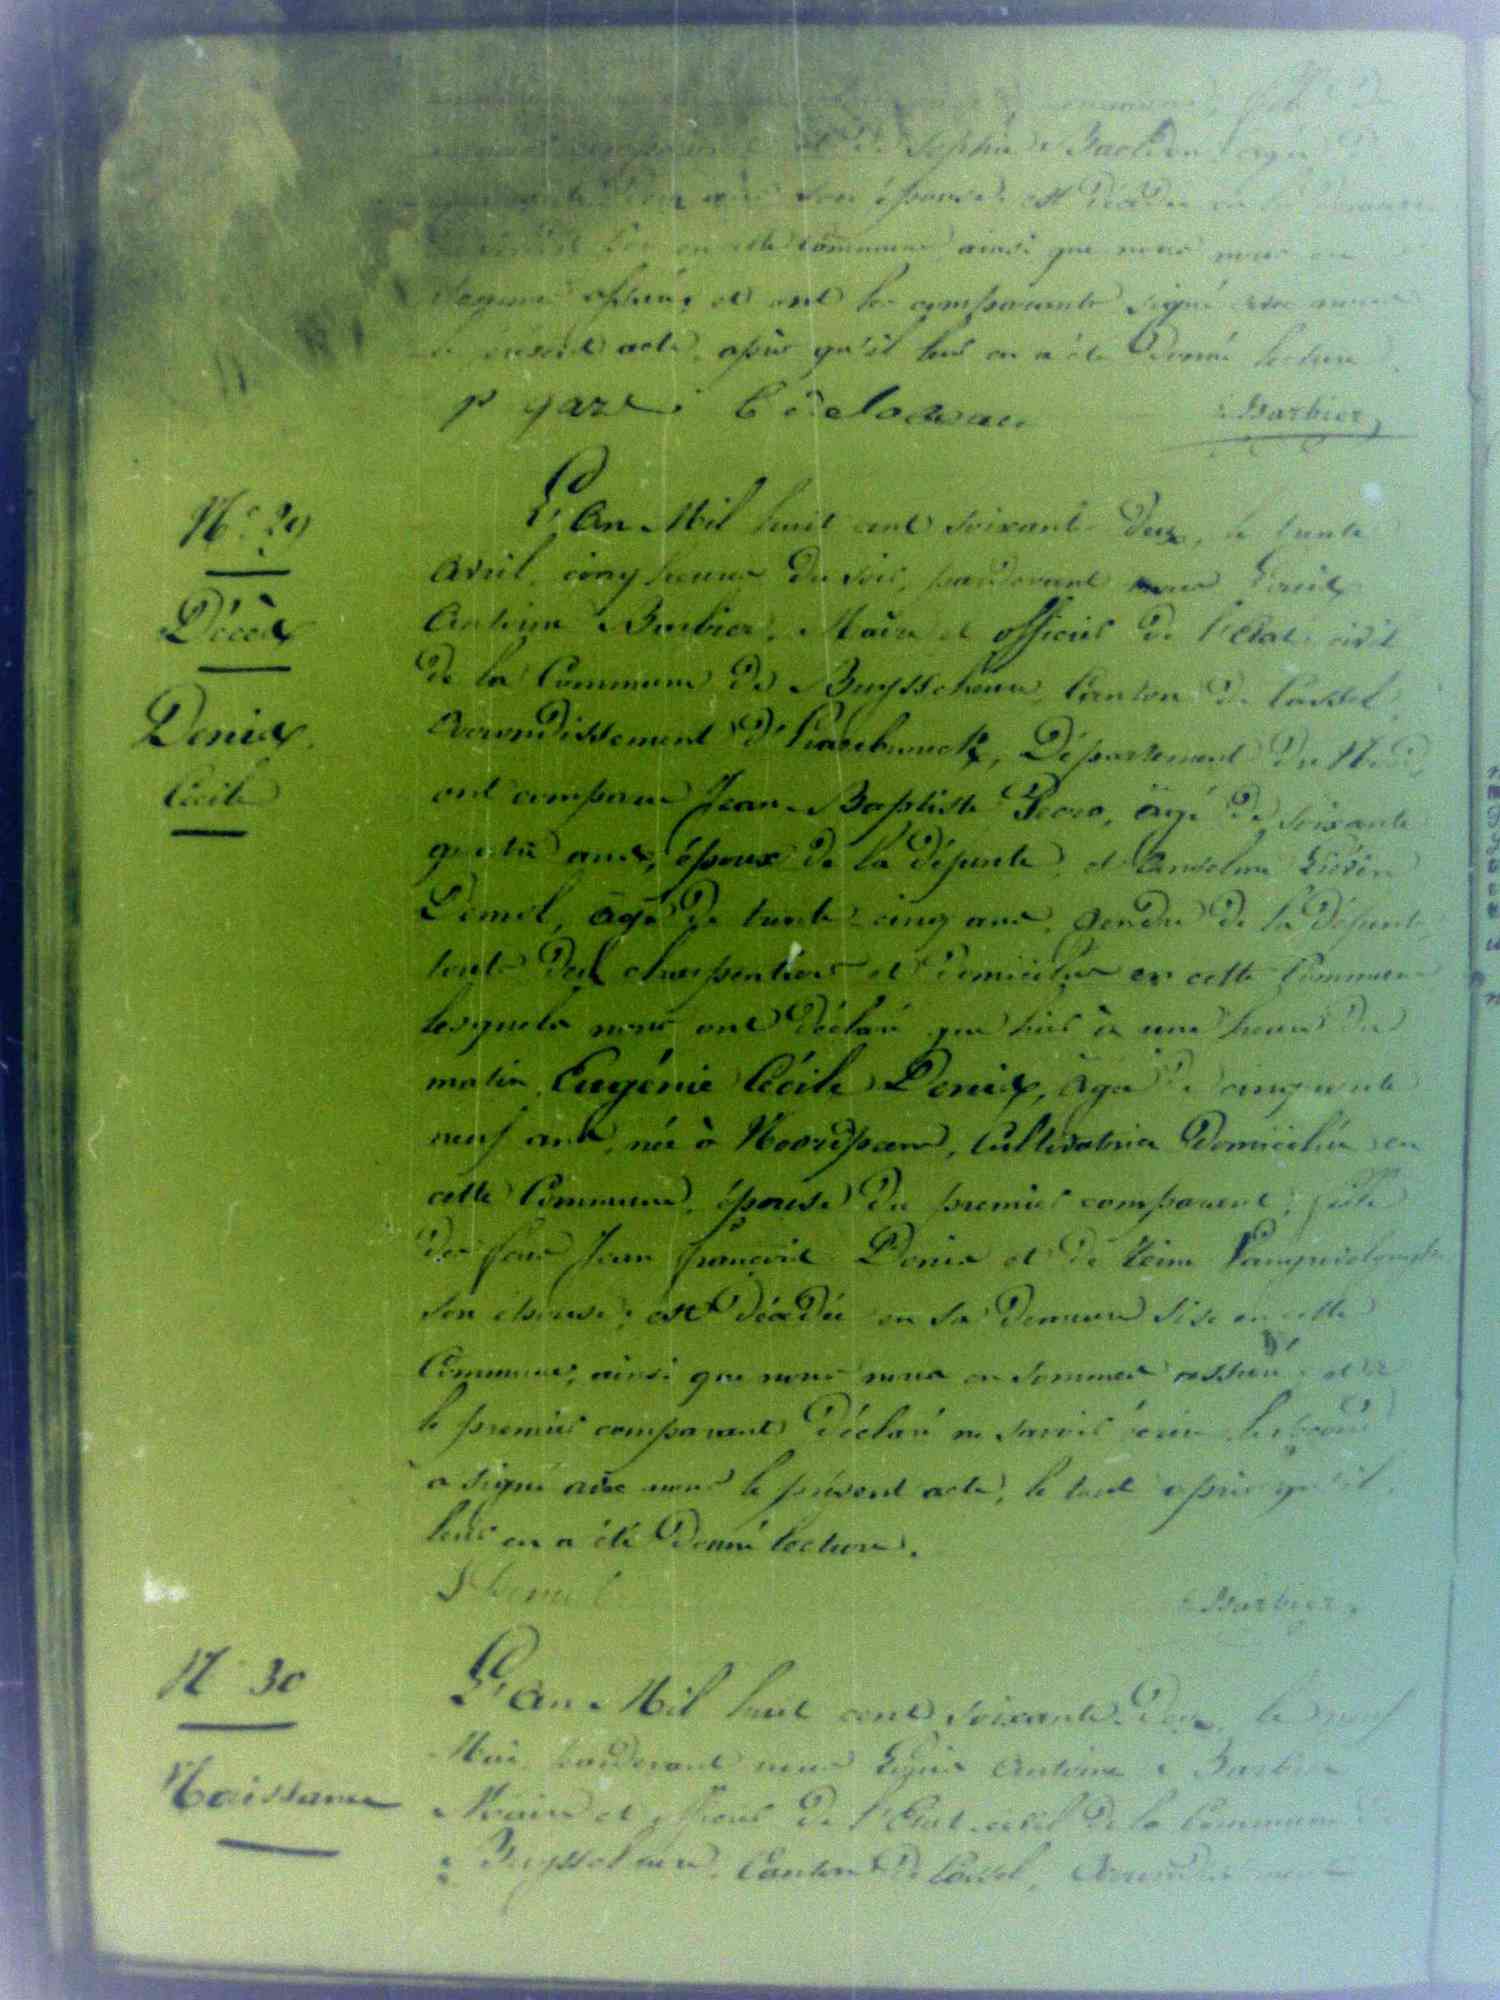 et de Sophie
son épouse, est décédé en sa demeure
en cette commune ainsi que nous nous en
sommes assuré, et ont les comparants signé avec nous
le présent acte, après qu'il leur en a été donné lecture.
Barbier
N° 29
Décès
Denix
Cécile
L'An Mil huit cent soixante-deux, le trente
Avril, cinq heures du soir, pardevant nous Louis
Antoine Barbier, Maire et officier de l'Etat-civil
de la Commune de Buysscheure, Canton de Cassel,
Arrondissement d'Hazebrouck, Département du Nord,
ont comparu Jean-Baptiste Decro, âgé de soixante
quatre ans, époux de la défunte, et Anselme
Demol, âgé de trente-cinq ans, gendre de la défunte,
tous deux charpentiers et domiciliés en cette Commune
lesquels nous ont déclaré que hier à une heure du
matin, Eugénie Cécile Denix, âgée de cinquante
neuf ans, née à Noordpeene, Cultivatrice domiciliée en
cette Commune, épouse du premier comparant; fille
des feus Jean François Denix et de
son épouse; est décédée en sa demeure sise en cette
Commune, ainsi que nous nous en sommes assuré, et
le premier comparant déclaré ne savoir écrire, le second
a signé avec nous le présent acte, le tout après qu'il
leur en a été donné lecture.
Demol
Barbier
N° 30
Naissance
L'An Mil huit cent soixante-Deux, le neuf
Mai, pardevant nous Louis Antoine Barbier
Maire et officier de l'Etat-civil de la Commune de
Buysscheure, Canton de Cassel, Arrondissement